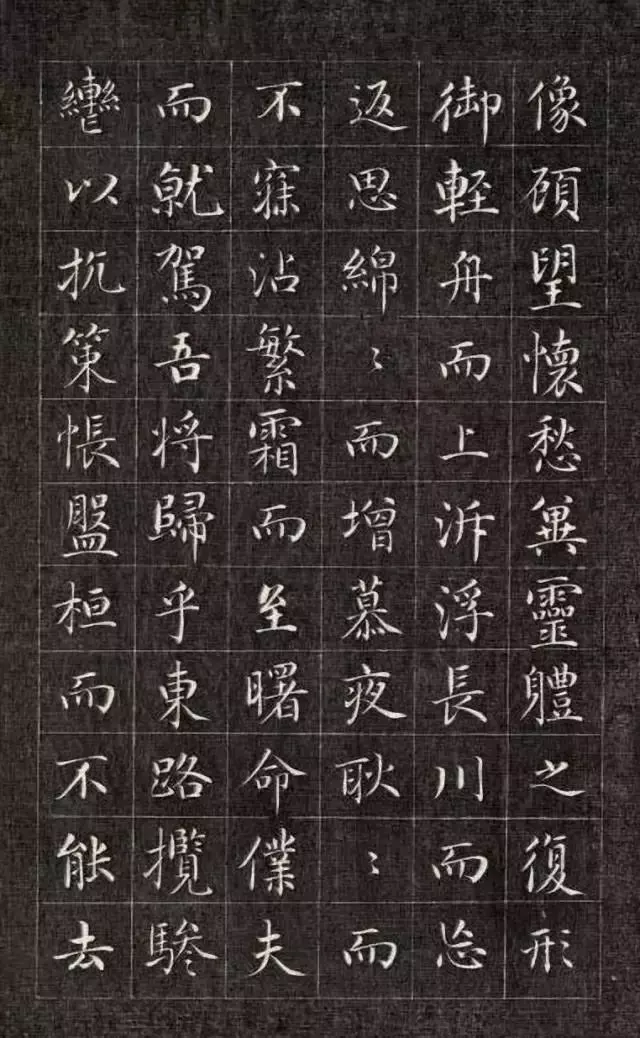 像頋望懷愁兾靈軆之復形
御輊舟而上泝浮長川而忘
返思綿〻而增慕夜耿〻而
不寐沾繁霜而至曙命僕夫
而就駕吾将歸乎東路攬騑
轡以抗策悵盤桓而不能去